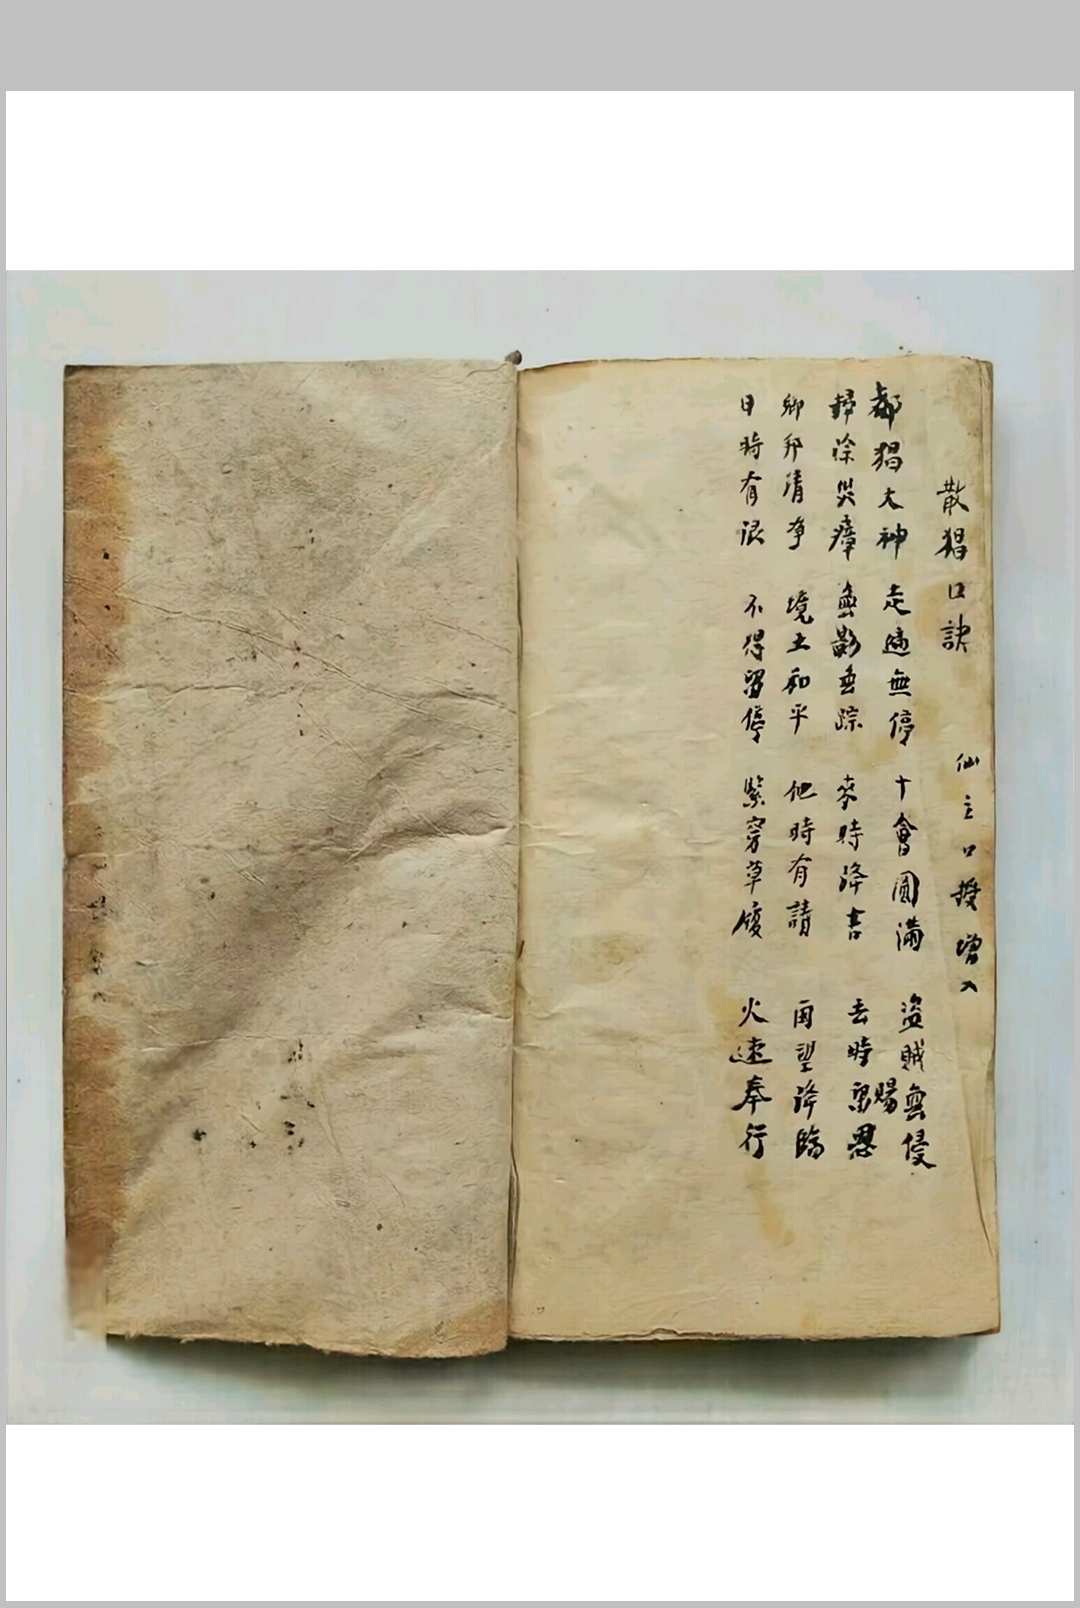 散猖口訣 仙主口授增入
都猖大神 走遍無停 十會圓滿 盜賊無侵
歸除災瘴 無影無踪 來時降書 去時留賜恩
鄉邦清爭 境土和平 他時有請 再望降臨
日時有限 不得留停 緊穿草履 火速奉行